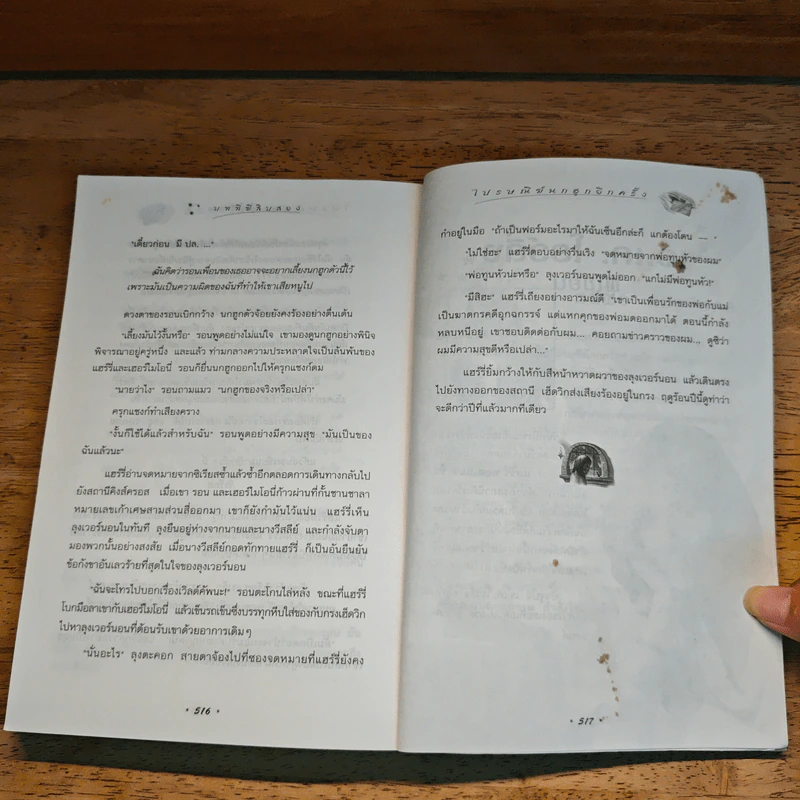 บทที่ยี่สิบสอง
"เดี๋ยวก่อน มี ปล. ..."
ฉันคิดว่ารอนเพื่อนของเธออาจจะอยากเลี้ยงนกฮูกตัวนี้ไว้
เพราะมันเป็นความผิดของฉันที่ทำให้เขาเสียหนูไป
ดวงตาของรอนเบิกกว้าง นกฮูกตัวจ้อยยังคงร้องอย่างตื่นเต้น
"เลี้ยงมันไว้งั้นหรือ" รอนพูดอย่างไม่แน่ใจ เขามองดูนกฮูกอย่างพินิจ
พิจารณาอยู่ครู่หนึ่ง และแล้ว ท่ามกลางความประหลาดใจเป็นล้นพ้นของ
แฮร์รี่และเฮอร์ไมโอนี่ รอนก็ยื่นนกฮูกออกไปให้ครุกแชงก์ดม
"นายว่าไง" รอนถามแมว "นกฮูกของจริงหรือเปล่า"
ครุกแชงก์ทำเสียงคราง
"งั้นก็ใช้ได้แล้วสำหรับฉัน" รอนพูดอย่างมีความสุข "มันเป็นของ
ฉันแล้วนะ"
แฮร์รี่อ่านจดหมายจากซิเรียสซ้ำแล้วซ้ำอีกตลอดการเดินทางกลับไป
ยังสถานีคิงส์ครอส เมื่อเขา รอน และเฮอร์ไมโอนี่ก้าวผ่านที่กั้นชานชาลา
หมายเลขเก้าเศษสามส่วนสี่ออกมา เขาก็ยังกำมันไว้แน่น แฮร์รี่เห็น
ลุงเวอร์นอนในทันที ลุงยืนอยู่ห่างจากนายและนางวีสลีย์ และกำลังจับตา
มองพวกนั้นอย่างสงสัย เมื่อนางวีสลีย์กอดทักทายแฮร์รี่ ก็เป็นอันยืนยัน
ข้อกังขาอันเลวร้ายที่สุดในใจของลุงเวอร์นอน
"ฉันจะโทรไปบอกเรื่องเวิลด์คัพนะ!" รอนตะโกนไล่หลัง ขณะที่แฮร์รี่
โบกมือลาเขากับเฮอร์ไมโอนี่ แล้วเข็นรถเข็นซึ่งบรรทุกหีบใส่ของกับกรงเฮ็ดวิก
ไปหาลุงเวอร์นอนที่ต้อนรับเขาด้วยอาการเดิมๆ
"นั่นอะไร" ลุงตะคอก สายตาจ้องไปที่ซองจดหมายที่แฮร์รี่ยังคง
• 516 •
ไปรษณีย์นกฮูกอีกครั้ง
กำอยู่ในมือ "ถ้าเป็นฟอร์มอะไรมาให้ฉันเซ็นอีกล่ะก็ แกต้องโดน — "
"ไม่ใช่ฮะ" แฮร์รี่ตอบอย่างรื่นเริง "จดหมายจากพ่อทูนหัวของผม"
"พ่อทูนหัวน่ะหรือ" ลุงเวอร์นอนพูดไม่ออก "แกไม่มีพ่อทูนหัว!"
"มีสิฮะ" แฮร์รี่เถียงอย่างอารมณ์ดี "เขาเป็นเพื่อนรักของพ่อกับแม่
เป็นฆาตกรคดีอุกฉกรรจ์ แต่แหกคุกของพ่อมดออกมาได้ ตอนนี้กำลัง
หลบหนีอยู่ เขาชอบติดต่อกับผม... คอยถามข่าวคราวของผม... ดูซิว่า
ผมมีความสุขดีหรือเปล่า..."
แฮร์รี่ยิ้มกว้างให้กับสีหน้าหวาดผวาของลุงเวอร์นอน แล้วเดินตรง
ไปยังทางออกของสถานี เฮ็ดวิกส่งเสียงร้องอยู่ในกรง ฤดูร้อนปีนี้ดูท่าว่า
จะดีกว่าปีที่แล้วมากทีเดียว
• 517 •